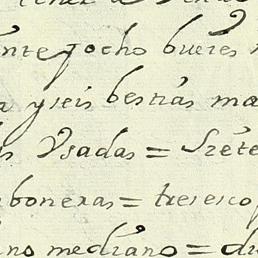 ente y ocho bueies
y seis bestias ma
Vsadas = Siete
boneras = tres esco
no mediano = du